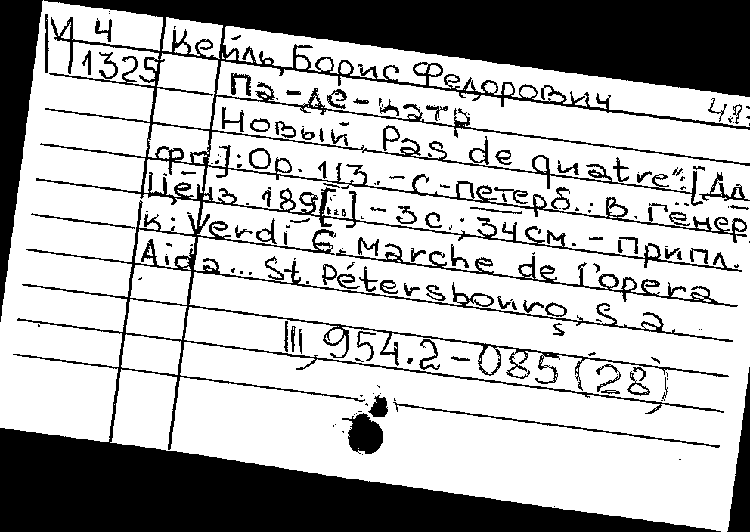 М 4
1325
Кейль, Борис Федорович
487
Па-де-катр
Новый „Pas de quatre": [Дл
фп.]: Ор. 113. - С.-Петерб.: В. Генер
Ценз. 189[...]. - 3 с.; 34 см. - Припл.
к: Verdi G. Marche de l'opera
Aida... St. Pétersbourg, S. a.
III, 954.2-085 (28)